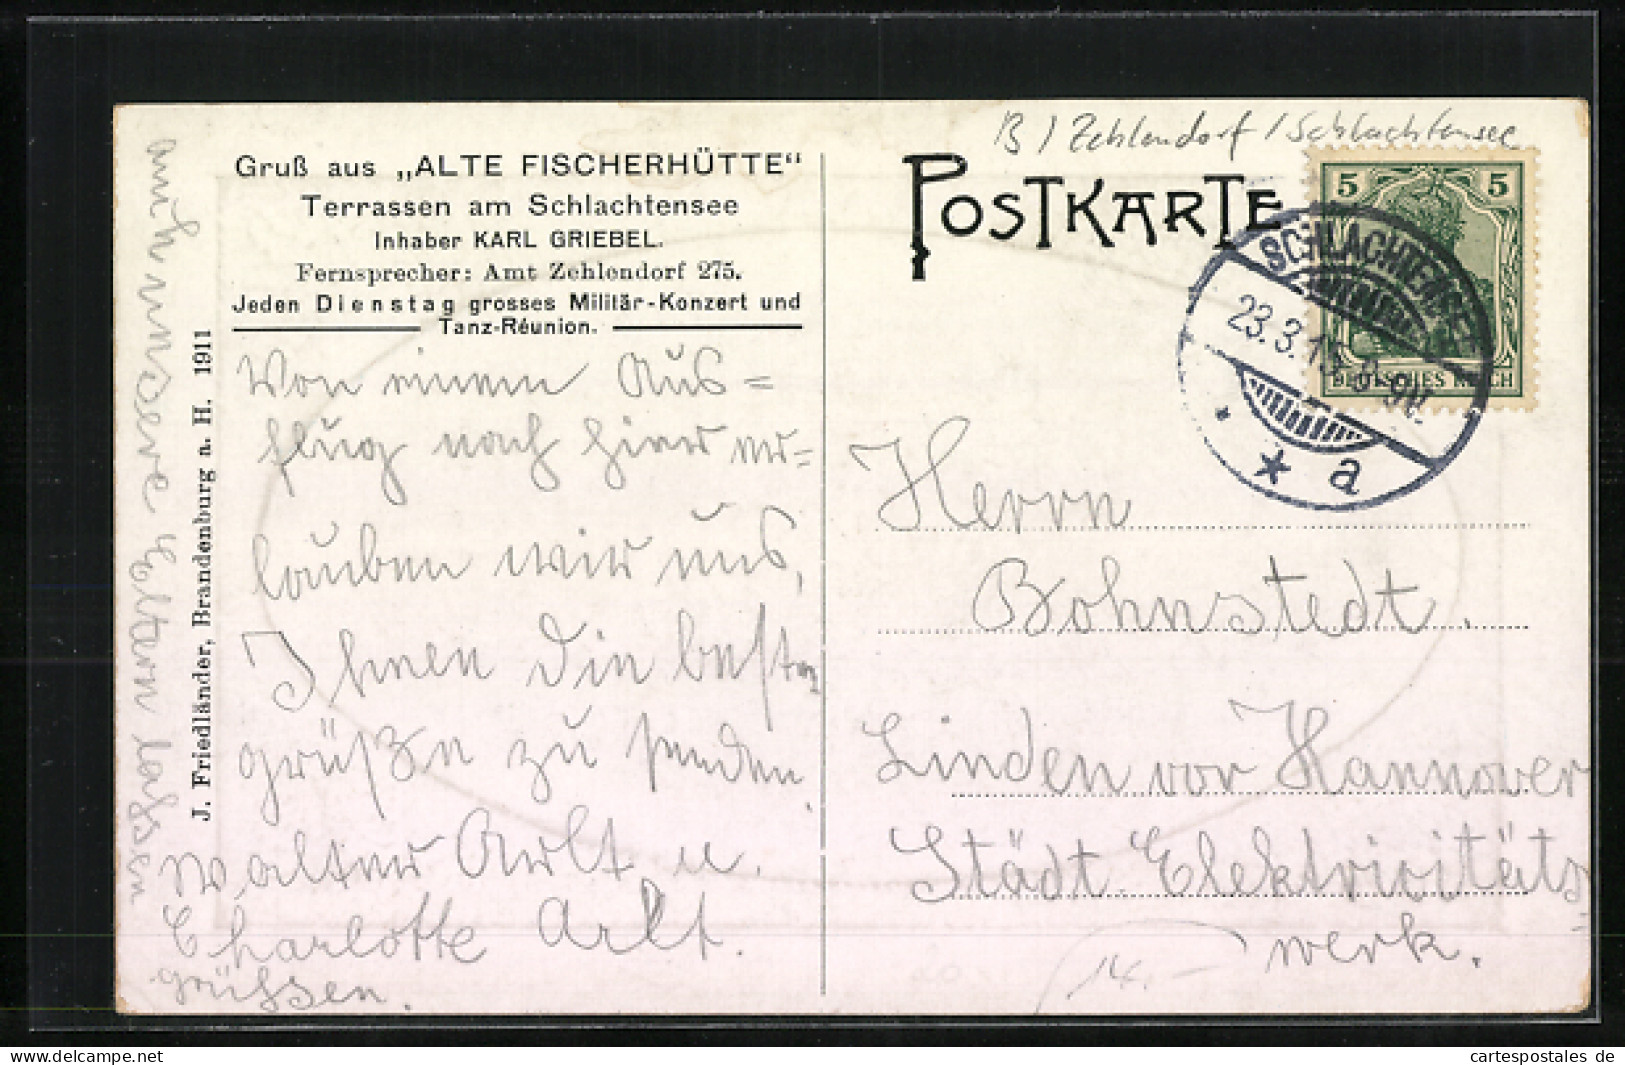 B / Zehlendorf / Schlachtensee
Gruß aus „ALTE FISCHERHÜTTE“
Terrassen am Schlachtensee
Inhaber KARL GRIEBEL.
Fernsprecher: Amt Zehlendorf 275.
Jeden Dienstag grosses Militär-Konzert und
Tanz-Réunion.
Von einem Aus=
flug nach hier er=
lauben wir uns,
Ihnen die besten
Grüße zu senden.
Walter Arlt u.
Charlotte Arlt.
auch unsere Eltern lassen
grüssen.
J. Friedländer, Brandenburg a. H. 1911
POSTKARTE
5 5
DEUTSCHES REICH
SCHLACHTENSEE
23.3.15. 8-9V.
* a
Herrn
Bohnstedt.
Linden vor Hannover
Städt. Elektricitäts
werk.
14.-
cartespostales de